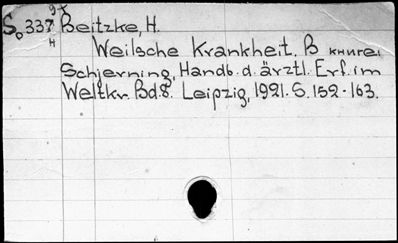 So 337 Beitzke, H.
Weilsche Krankheit. В книге:
Schjerning, Handb. d. ärztl. Erf. im
Weltkr. Bd. 8. Leipzig, 1921. S. 152-163.